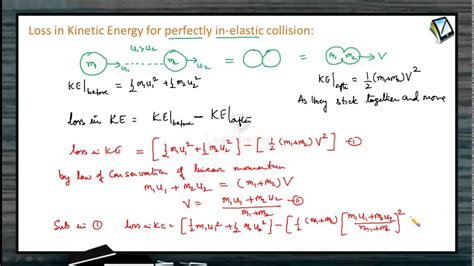 Loss in Kinetic Energy for perfectly in-elastic collision:
u₁>u₂
m₁ → u₁ m₂ → u₂ = = m₁ m₂ → V
KE|before = ½m₁u₁² + ½m₂u₂²
KE|after = ½(m₁+m₂)V²
As they stick together and move
loss in KE = KE|before − KE|after
loss in KE = [½m₁u₁² + ½m₂u₂²] − [½(m₁+m₂)V²] —①
by law of Conservation of linear momentum
m₁u₁ + m₂u₂ = (m₁+m₂)V
V = (m₁u₁ + m₂u₂)/(m₁+m₂) —②
Sub in ① loss in KE = [½m₁u₁² + ½m₂u₂²] − [½(m₁+m₂)[(m₁u₁+m₂u₂)/(m₁+m₂)]²